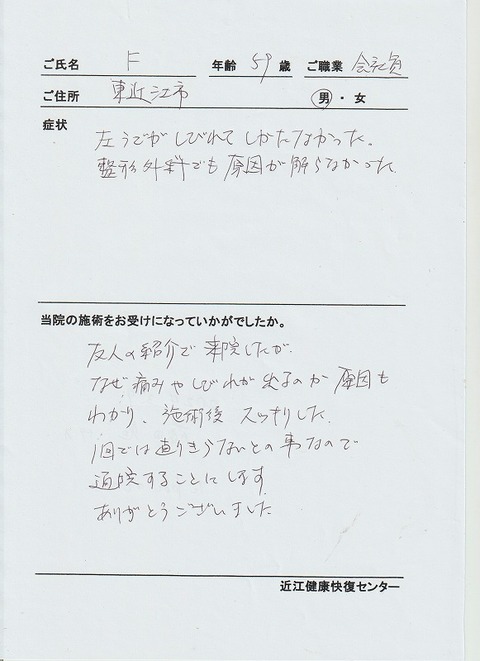 ご氏名 F 年齢 59 歳 ご職業 会社員
ご住所 東近江市 男・女
症状
左うでがしびれてしかたなかった。
整形外科でも原因が解らなかった
当院の施術をお受けになっていかがでしたか。
友人の紹介で来院したが
なぜ痛みやしびれが出るのか原因も
わかり、施術後スッキリした
1回では直りきらないとの事なので
通院することにします
ありがとうございました
近江健康快復センター